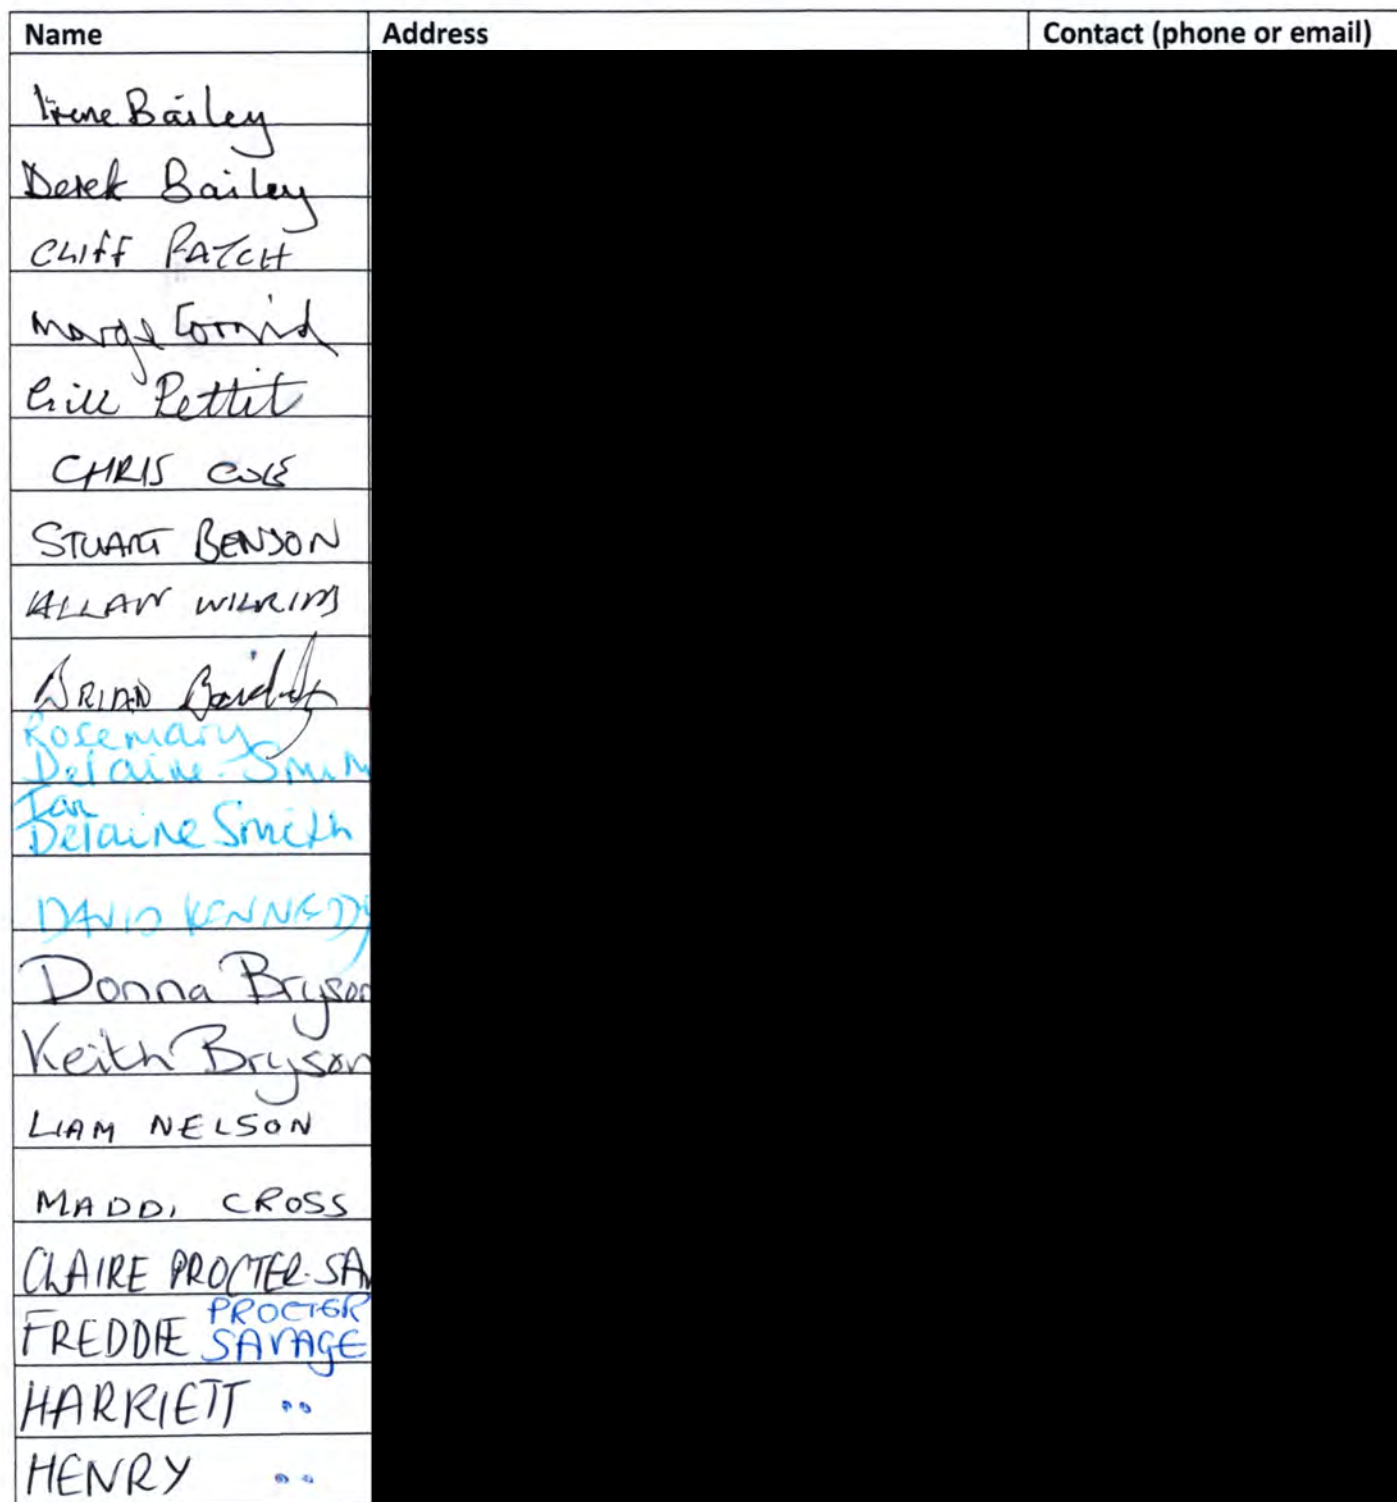 Name Address Contact (phone or email)
Irene Bailey
Derek Bailey
CLIFF PATCH
Marge
Gill Pettit
CHRIS COLE
STUART BENSON
ALLAN WILKINS
BRIAN
Rosemary
Delaine-Smith
Ian
Delaine Smith
DAVID KENNEDY
Donna Bryson
Keith Bryson
LIAM NELSON
MADDI CROSS
CLAIRE PROCTER-SA
FREDDIE PROCTER
SAVAGE
HARRIETT ..
HENRY ..